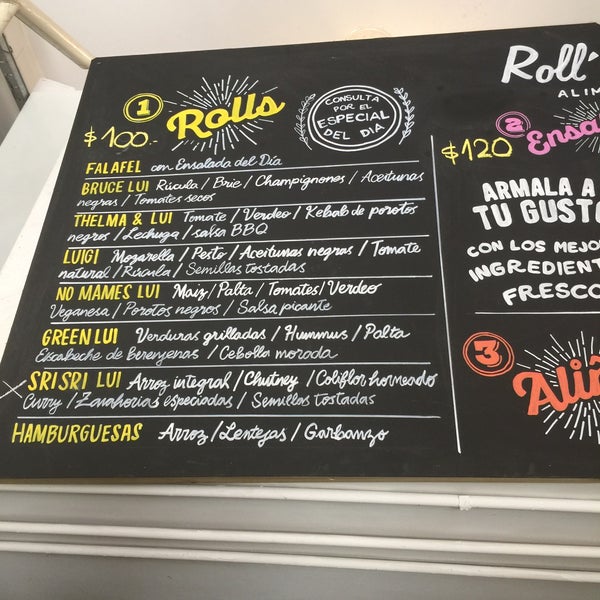 1
Rolls
$100.-
CONSULTA
POR EL
ESPECIAL
DEL DIA
FALAFEL con Ensalada del Día
BRUCE LUI Rúcula / Brie / Champignones / Aceitunas
negras / Tomates secos
THELMA & LUI Tomate / Verdeo / Kebab de porotos
negros / Lechuga / salsa BBQ
LUIGI Mozarella / Pesto / Aceitunas negras / Tomate
natural / Rúcula / Semillas tostadas
NO MAMES LUI Maiz / Palta / Tomates / Verdeo
Veganesa / Porotos negros / Salsa picante
GREEN LUI Verduras grilladas / Hummus / Palta
Escabeche de berenjenas / Cebolla morada
SRI SRI LUI Arroz integral / Chutney / Coliflor horneado
Curry / Zanahorias especiadas / Semillas tostadas
HAMBURGUESAS Arroz / Lentejas / Garbanzo
Roll'
ALIM
2
Ensa
$120
ARMALA A
TU GUSTO
CON LOS MEJO
INGREDIENT
FRESCO
3
Aliñ